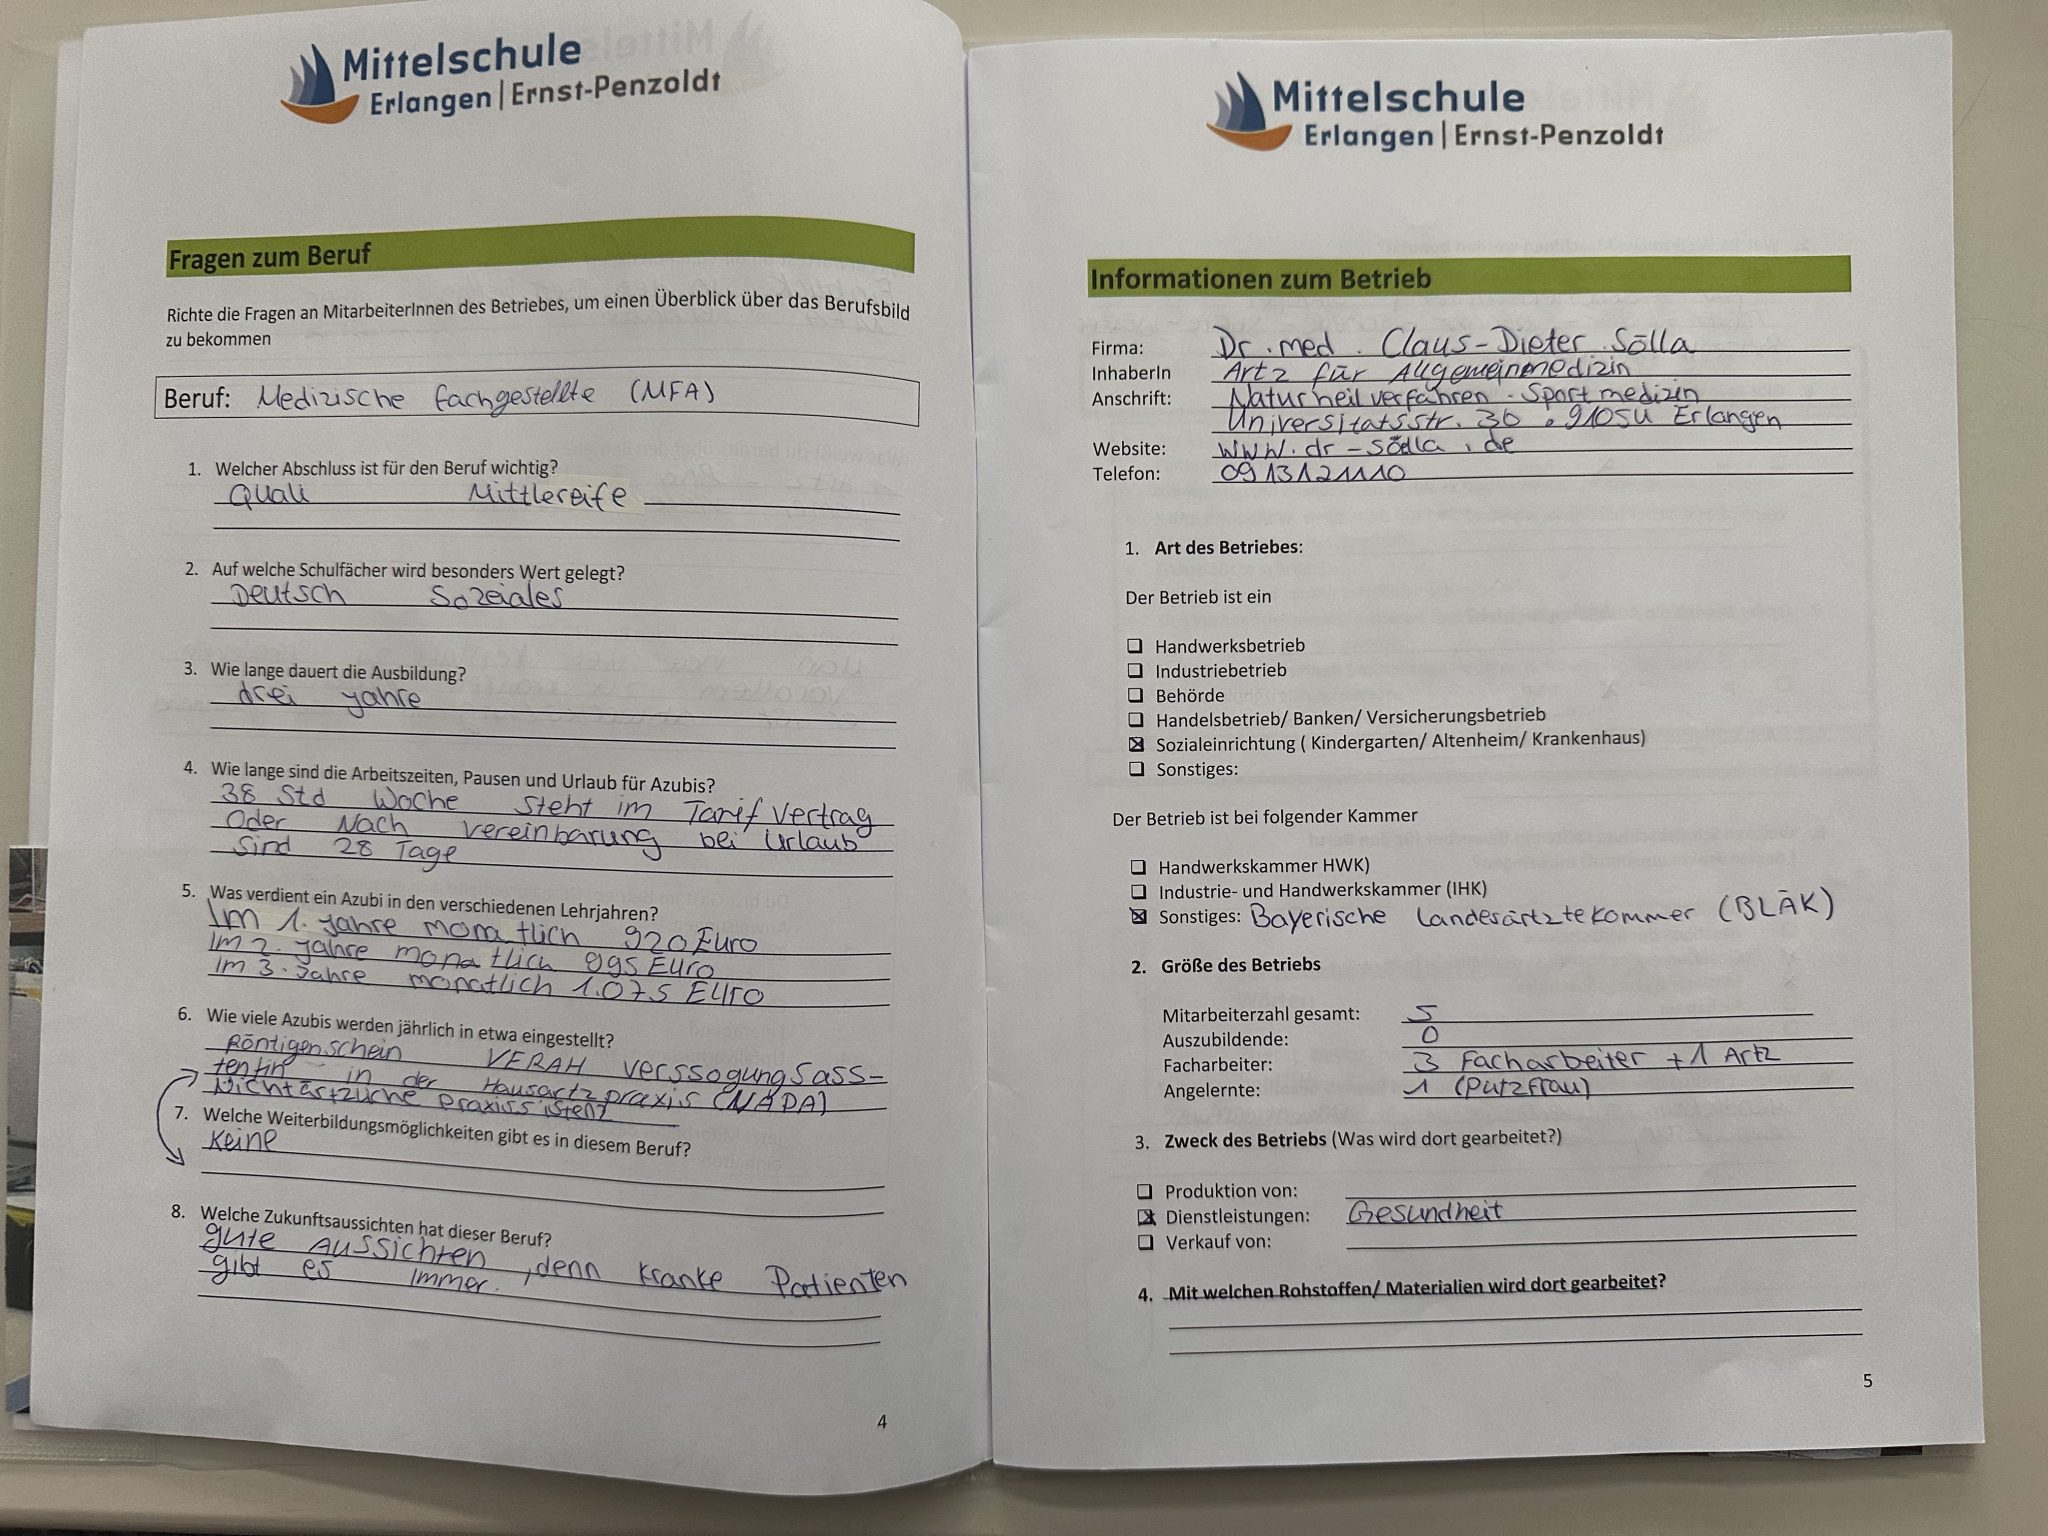 Mittelschule
Erlangen | Ernst-Penzoldt
Fragen zum Beruf
Richte die Fragen an MitarbeiterInnen des Betriebes, um einen Überblick über das Berufsbild
zu bekommen
Beruf: Medizische fachgestellte (MFA)
1. Welcher Abschluss ist für den Beruf wichtig?
Quali Mittlereife
2. Auf welche Schulfächer wird besonders Wert gelegt?
Deutsch Sozeiales
3. Wie lange dauert die Ausbildung?
drei jahre
4. Wie lange sind die Arbeitszeiten, Pausen und Urlaub für Azubis?
38 Std Woche steht im Tarif Vertrag
Oder Nach vereinbarung bei Urlaub
Sind 28 Tage
5. Was verdient ein Azubi in den verschiedenen Lehrjahren?
Im 1. jahre monatlich 920 Euro
Im 2. jahre monatlich 995 Euro
Im 3. jahre monatlich 1.075 Euro
6. Wie viele Azubis werden jährlich in etwa eingestellt?
Röntigenschein VERAH verssogungsass-
tentin in der Hausartzpraxis (NÄPA)
Nichtärtzliche praxissistenz
7. Welche Weiterbildungsmöglichkeiten gibt es in diesem Beruf?
Keine
8. Welche Zukunftsaussichten hat dieser Beruf?
gute Aussichten, denn kranke Patienten
gibt es immer.
4
Mittelschule
Erlangen | Ernst-Penzoldt
Informationen zum Betrieb
Firma: Dr. med. Claus-Dieter Sölla
InhaberIn Artz für Allgemeinmedizin
Anschrift: Naturheilverfahren · Sportmedizin
Universitatsstr. 30 · 91054 Erlangen
Website: www.dr-sölla.de
Telefon: 0913121110
1. Art des Betriebes:
Der Betrieb ist ein
Handwerksbetrieb
Industriebetrieb
Behörde
Handelsbetrieb/ Banken/ Versicherungsbetrieb
Sozialeinrichtung ( Kindergarten/ Altenheim/ Krankenhaus)
Sonstiges:
Der Betrieb ist bei folgender Kammer
Handwerkskammer HWK)
Industrie- und Handwerkskammer (IHK)
Sonstiges: Bayerische Landesärtztekommer (BLÄK)
2. Größe des Betriebs
Mitarbeiterzahl gesamt: 5
Auszubildende: 0
Facharbeiter: 3 Facharbeiter + 1 Artz
Angelernte: 1 (Putzfrau)
3. Zweck des Betriebs (Was wird dort gearbeitet?)
Produktion von:
Dienstleistungen: Gesundheit
Verkauf von:
4. Mit welchen Rohstoffen/ Materialien wird dort gearbeitet?
5